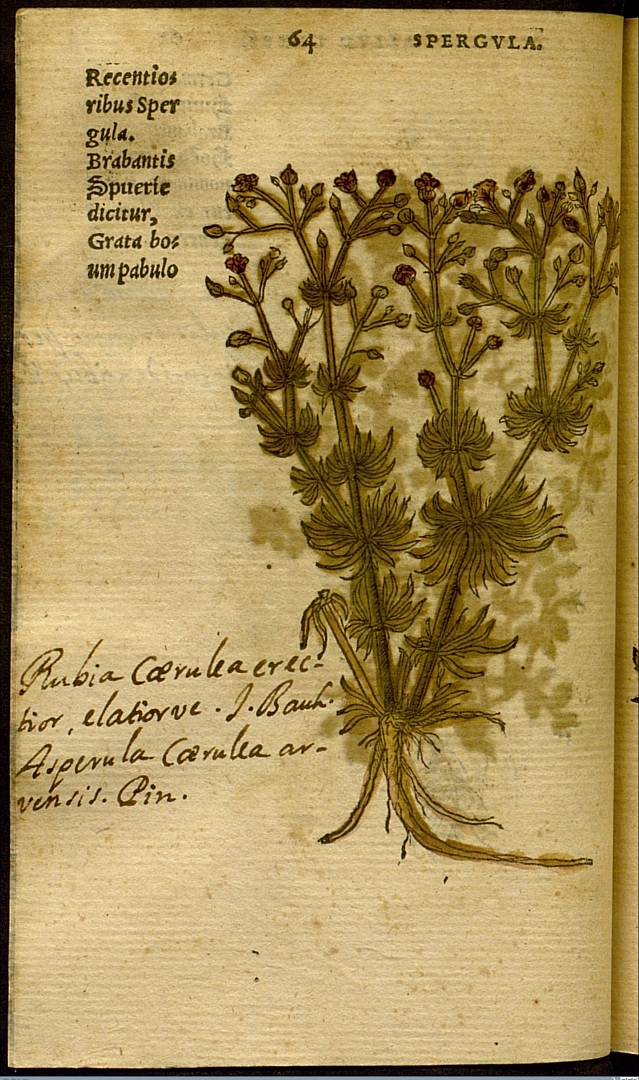 64 SPERGVLA.
Recentio⸗
ribus Sper
gula.
Brabantis
Spuerie
dicitur,
Grata bo⸗
um pabulo
Rubia Cærulea erec-
tior, elatiorve. J. Bauh.
Asperula Cærulea ar-
vensis. Pin.